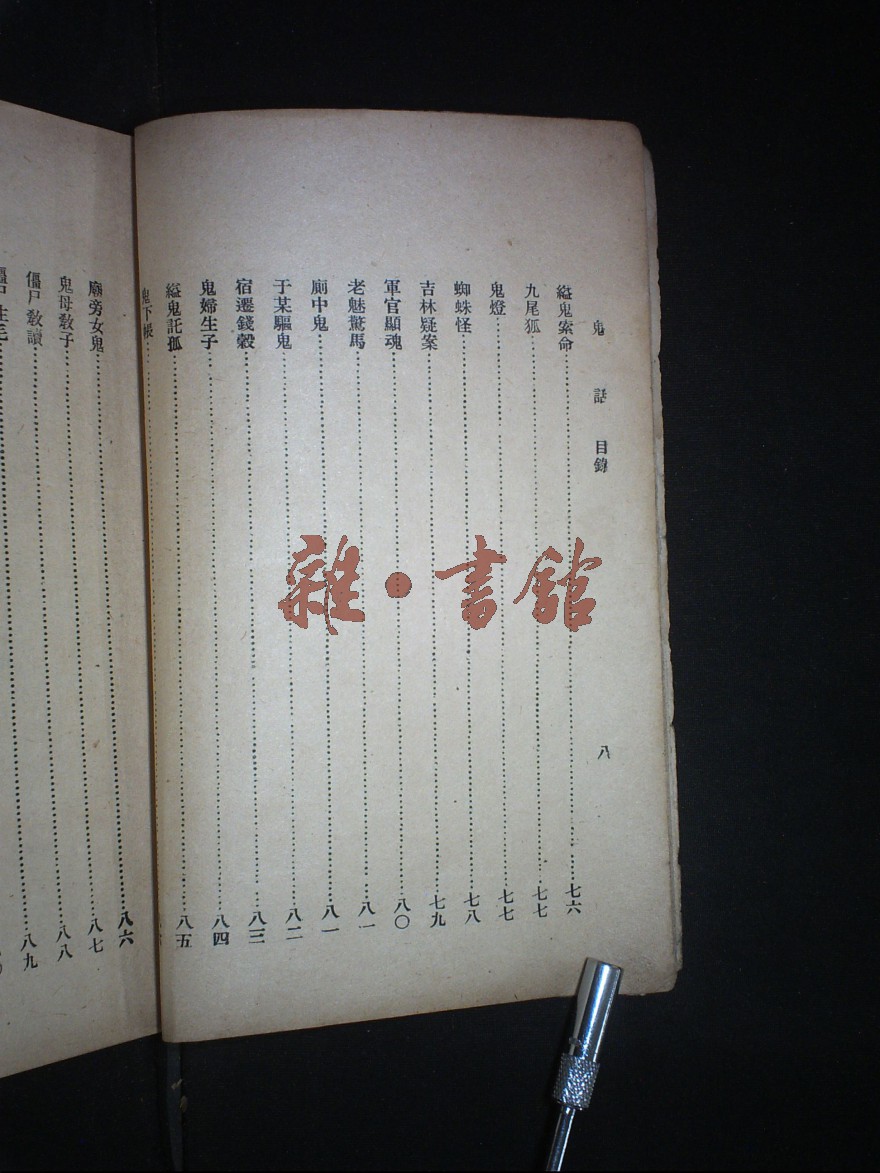 鬼話 目錄 八
縊鬼案命……七六
九尾狐……七七
鬼燈……七七
蜘蛛怪……七八
吉林疑案……七九
軍官顯魂……八〇
老魅驚馬……八一
廁中鬼……八一
于某驅鬼……八二
宿遷錢穀……八三
鬼婦生子……八四
縊鬼託孤……八五
鬼下帳……
廟旁女鬼……八六
鬼母敎子……八七
僵尸敎讀……八八
僵尸生毛……八九
雜·書館